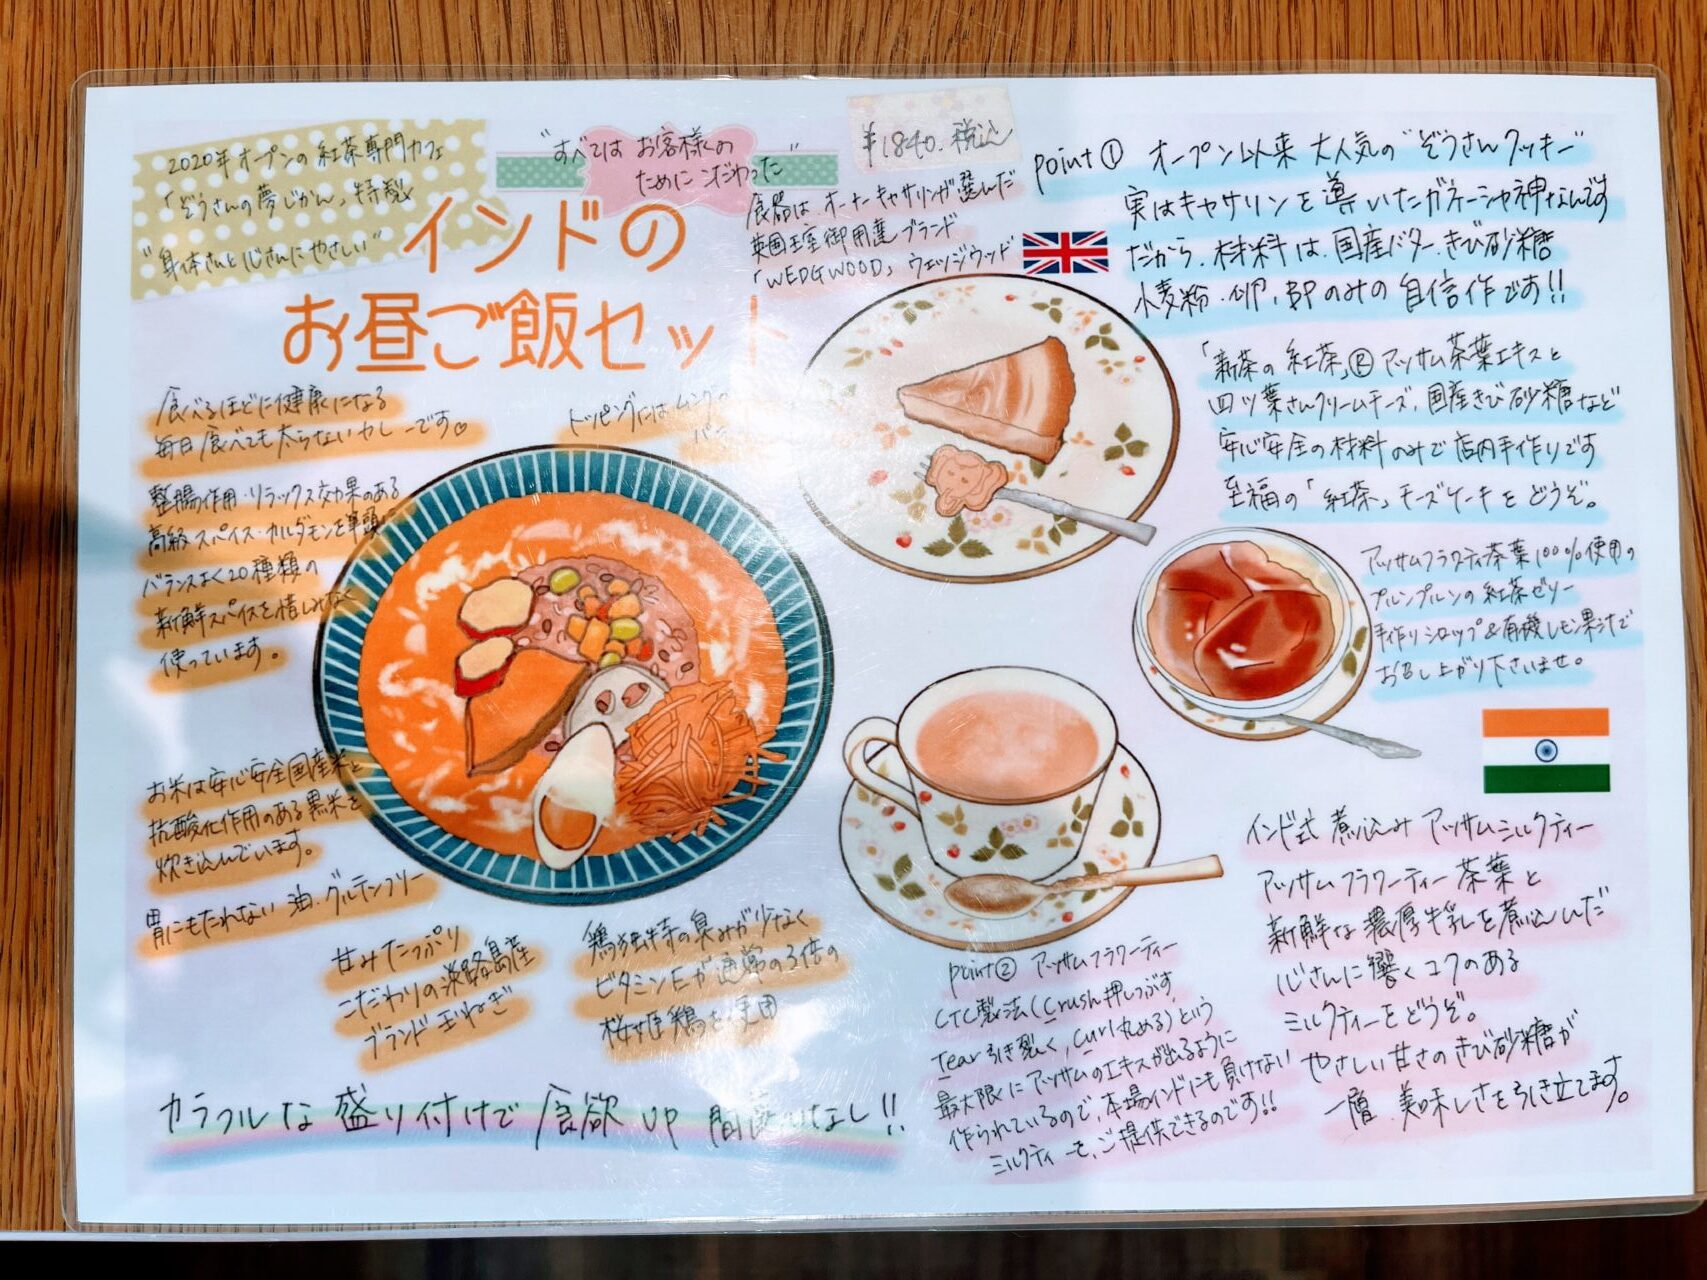 2020年オープンの紅茶専門カフェ
「ぞうさんの夢じかん」特製
"身体さんと心さんにやさしい"
"すべては お客様の
ために こだわった"
¥1840.税込
インドの
お昼ご飯セット
食器は、オーナーキャサリンが選んだ
英国王室御用達ブランド
「WEDGWOOD」ウェッジウッド
食べるほどに健康になる
毎日食べても太らないカレーです♡
トッピングにはムング
整腸作用・リラックス効果のある
高級スパイス・カルダモンを筆頭に
バランスよく20種類の
新鮮スパイスを惜しみなく
使っています。
お米は安心安全国産米と
抗酸化作用のある黒米を
炊き込んでいます。
胃にもたれない 油・グルテンフリー
甘みたっぷり
こだわりの淡路島産
ブランド玉ねぎ
鶏独特の臭みが少なく
ビタミンEが通常の3倍の
桜姫鶏を使用
カラフルな盛り付けで 食欲UP 間違いなし!!
point① オープン以来 大人気の"ぞうさんクッキー"
実はキャサリンを導いたガネーシャ神なんです
だから、材料は、国産バター、きび砂糖
小麦粉、卵、BPのみの自信作です!!
「新茶の紅茶」® アッサム茶葉エキスと
四ツ葉さんクリームチーズ、国産きび砂糖など
安心安全の材料のみで店内手作りです
至福の「紅茶」チーズケーキをどうぞ。
アッサムフラワティ茶葉100%使用の
プルンプルンの紅茶ゼリー
手作りシロップ&有機レモン果汁で
お召し上がり下さいませ。
インド式 煮込み アッサムミルクティー
アッサムフラワーティー茶葉と
新鮮な濃厚牛乳を煮込んだ
心さんに響くコクのある
ミルクティーをどうぞ。
やさしい甘さのきび砂糖が
一層、美味しさを引き立てます。
point② アッサムフラワーティー
CTC製法(Crush押しつぶす、
Tear引き裂く、Curl丸める)という
最大限にアッサムのエキスが出るように
作られているので、本場インドにも負けない
ミルクティーを、ご提供できるのです!!